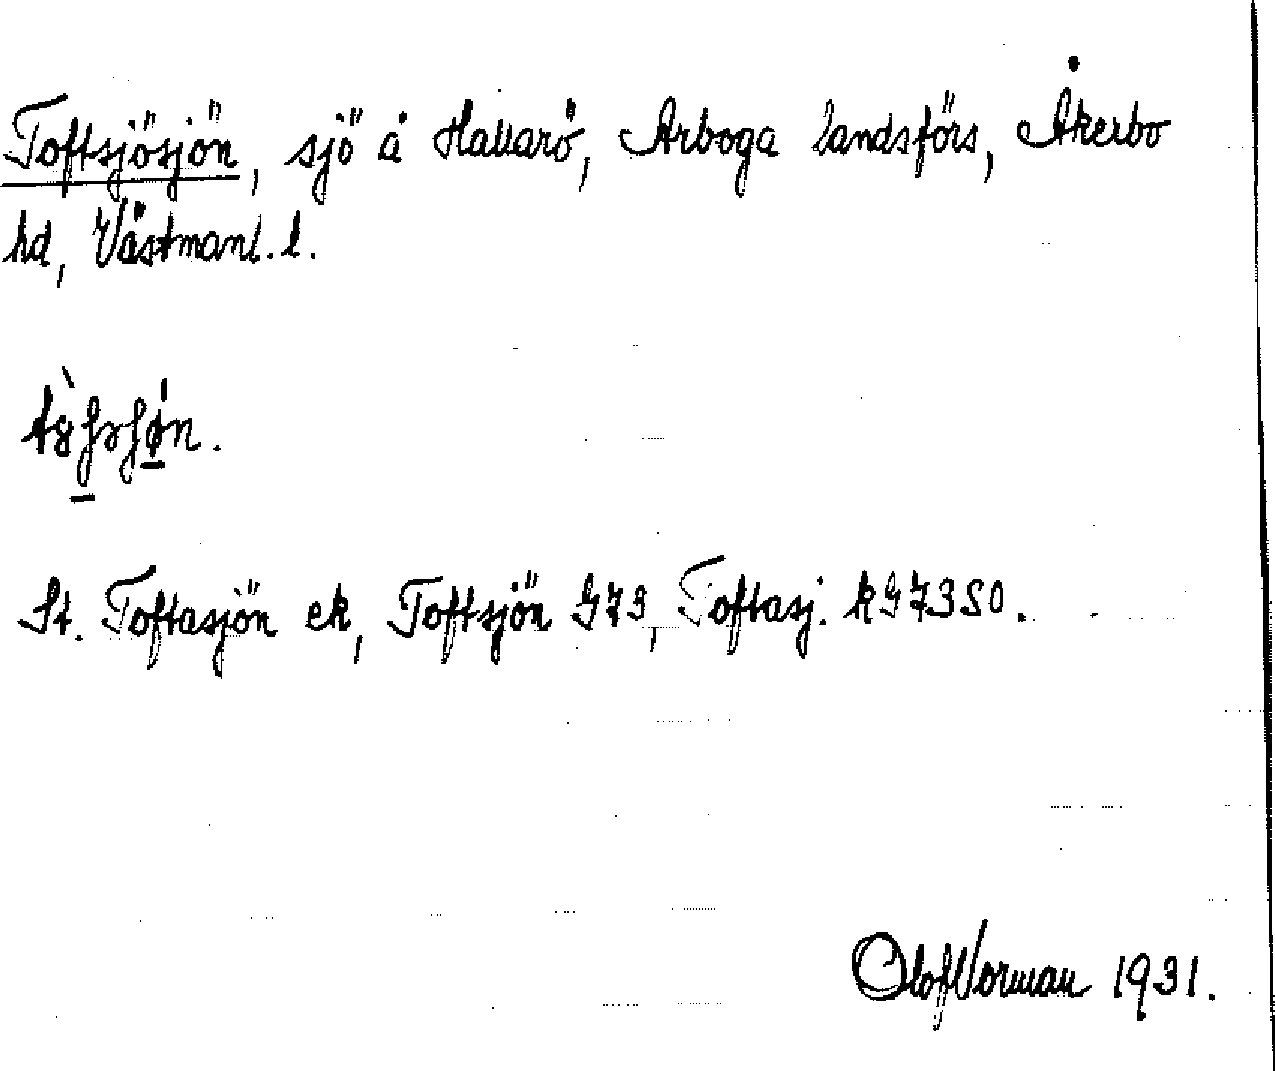 Toftsjösjön, sjö å Hallarö, Arboga landsförs, Åkerbo
hd, Västmanl. l.
St. Toftasjön ek, Toftsjön G73, Toftasj. kG73SO.
Olof Norman 1931.